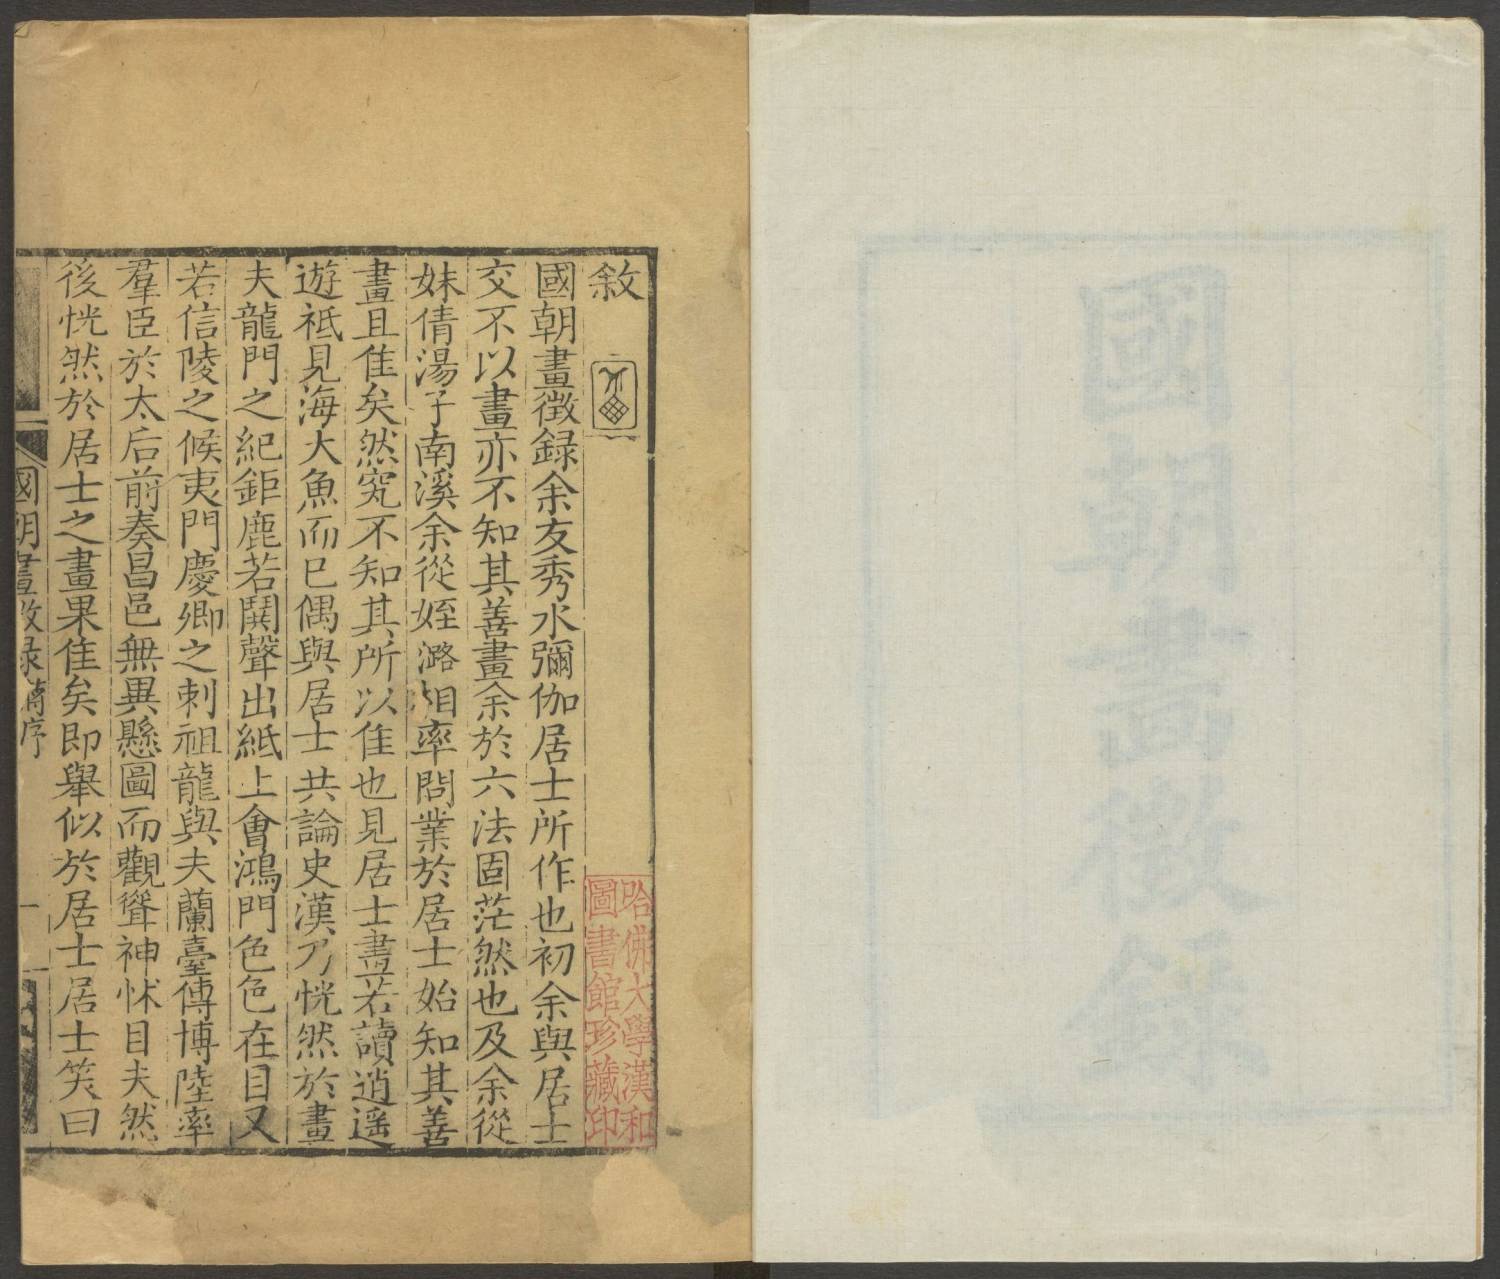 國朝畫徵錄
敘
國朝畫徵録余友秀水彌伽居士所作也初余與居士
交不以畫亦不知其善畫余於六法固茫然也及余從
妹倩湯子南溪余從姪潞相率問業於居士始知其善
畫且隹矣然究不知其所以隹也見居士畫若讀逍遥
遊祇見海大魚而巳偶與居士共論史漢乃恍然於畫
夫龍門之紀鉅鹿若鬪聲出紙上會鴻門色色在目又
若信陵之候夷門慶卿之刺祖龍與夫蘭臺傳博陸率
羣臣於太后前奏昌邑無異懸圖而觀聳神怵目夫然
後恍然於居士之畫果隹矣即舉似於居士居士笑曰
國朝畫徵録
序
一
哈佛大學漢和
圖書館珍藏印